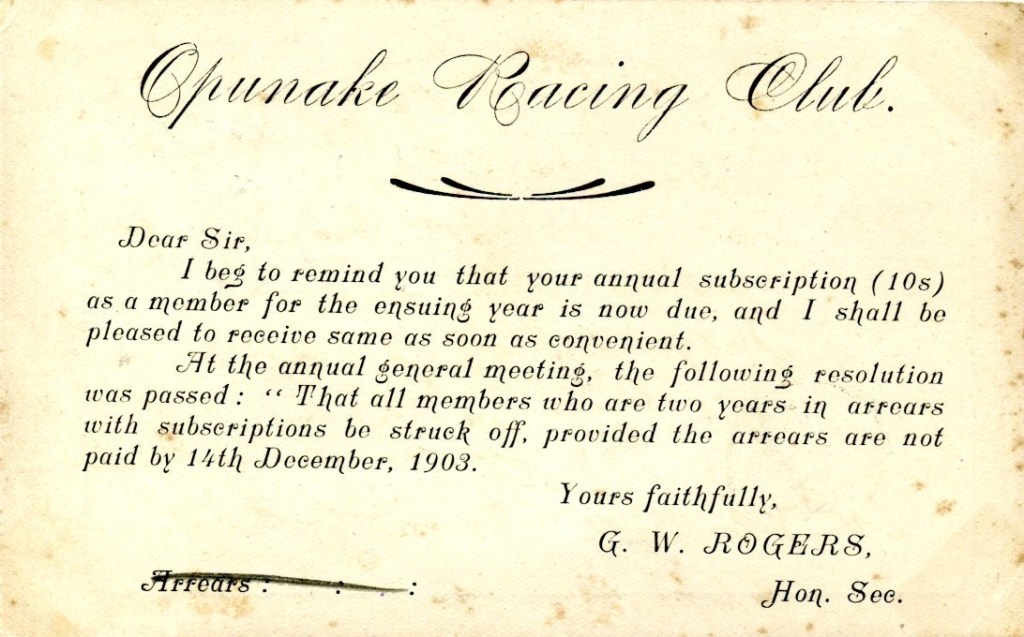 Opunake Racing Club.
Dear Sir,
I beg to remind you that your annual subscription (10s)
as a member for the ensuing year is now due, and I shall be
pleased to receive same as soon as convenient.
At the annual general meeting, the following resolution
was passed: "That all members who are two years in arrears
with subscriptions be struck off, provided the arrears are not
paid by 14th December, 1903.
Yours faithfully,
G. W. ROGERS,
Hon. Sec.
Arrears : : :